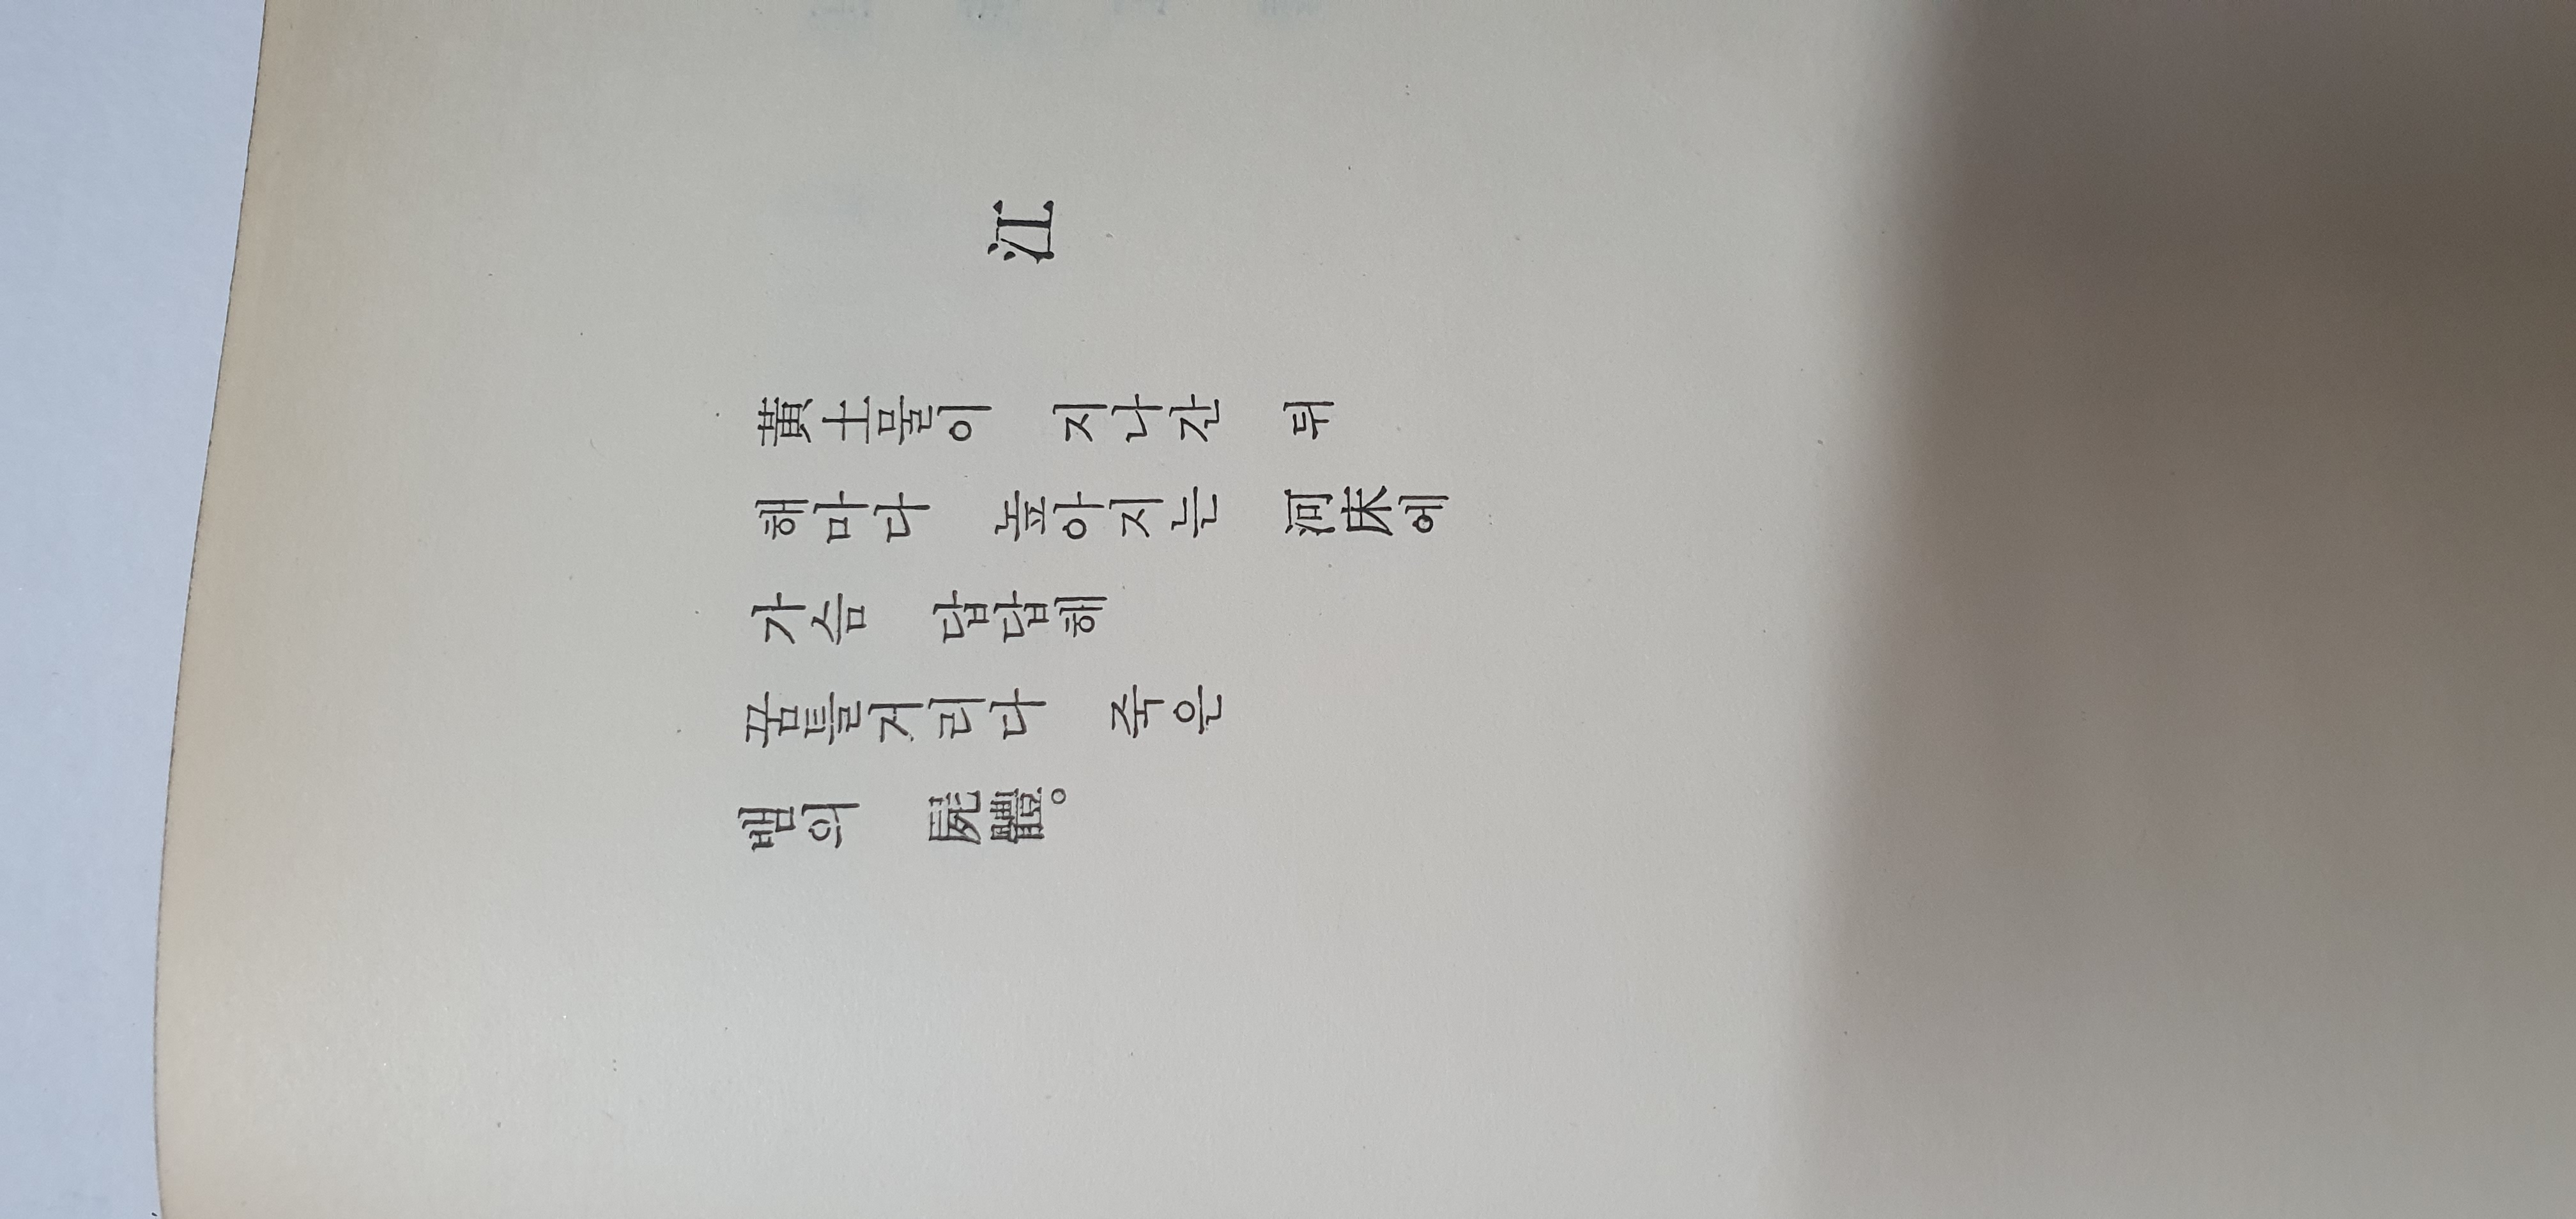 江
黃土물이 지나간 뒤
해마다 높아지는 河床에
가슴 답답해
꿈틀거리다 죽은
뱀의 屍體。